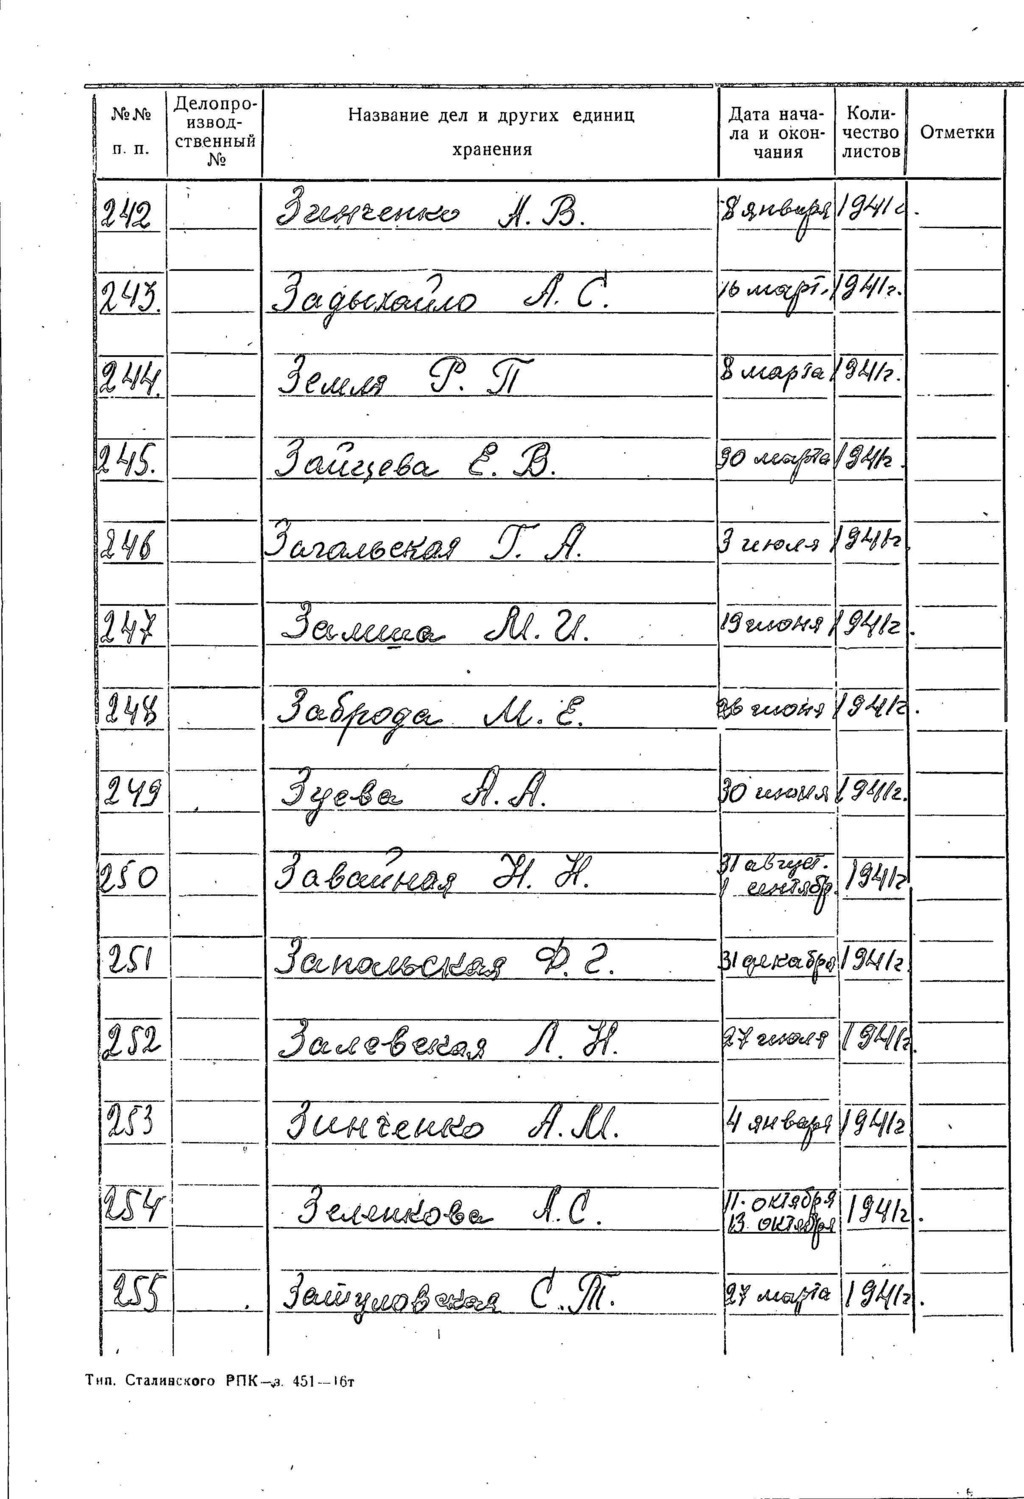 №№ п. п. Делопроизводственный № Название дел и других единиц хранения Дата начала и окончания Количество листов Отметки
242 Зинченко А. В. 8 января 1941г.
243. Задыхайло А. С. 16 март. 1941г.
244. Земля Р. П 8 марта 1941г.
245. Зайцева Е. В. 30 марта 1941г.
246 Загальская Г. А. 3 июля 1941г.
247 М. И. 19 июня 1941г.
248 Заброда М. Е. 26 июня 1941г.
249 Зуева А. А. 30 июня 1941г.
250 Завайная Н. Н. 31 август. 1941г
1 сентябр.
251 Запольская Ф. Г. 31 декабря 1941г.
252 Залевская Л. Н. 27 июля 1941г.
253 Зинченко А. М. 4 января 1941г
254 Зеленкова А. С. 11. октября 1941г.
13. октября
255 С. Т. 27 марта 1941г.
Тип. Сталинского РПК—з. 451—16т